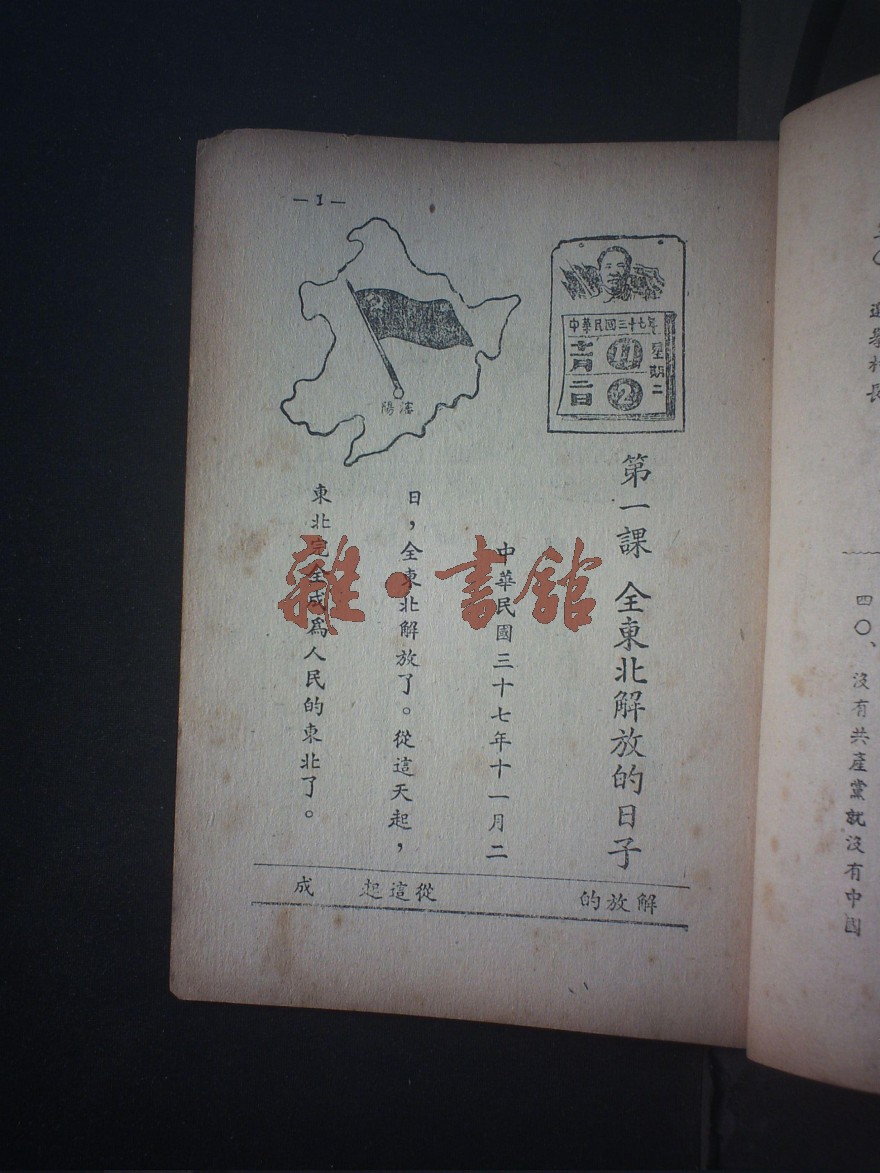 —1—
中華民国三十七年
十一月
11
星期二
二日
2
瀋陽
第一課 全東北解放的日子
中華民國三十七年十一月二
日,全東北解放了。從這天起,
東北完全成爲人民的東北了。
解放的
從這起
成
雜·書館
選舉村長
四〇、沒有共產黨就沒有中國